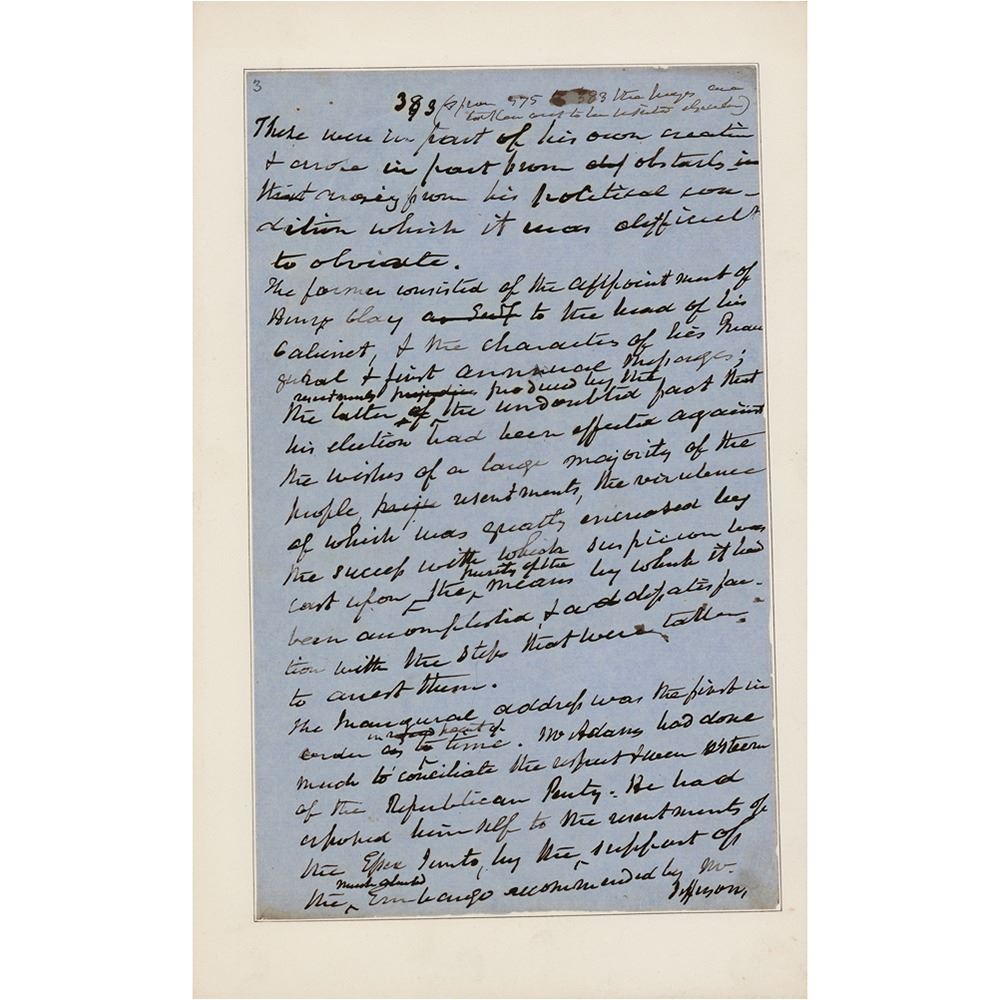 3
383 (from 375 to 383 the pages are
taken out to be used elsewhere)
These were in part of his own creation
& arose in part from obstacles in
that arising from his political con-
dition which it was difficult
to obviate.
The former consisted of the appointment of
Henry Clay to the head of his
Cabinet, & the character of his Inau
gural & first annual Messages;
resentments prejudices produced by the
the latter of the undoubted fact that
his election had been effected against
the wishes of a large majority of the
people, resentments, the virulence
of which was greatly encreased by
the success with which suspicion was
purity of the
cast upon the means by which it had
been accomplished, & a dissatisfac-
tion with the steps that were taken
to arrest them.
The Inaugural address was the first in
in point of
order as to time. Mr Adams had done
much to conciliate the respect & even esteem
of the Republican Party. He had
exposed himself to the resentments of
the Essex Junto, by the support of
much abused
the Embargo recommended by Mr.
Jefferson,